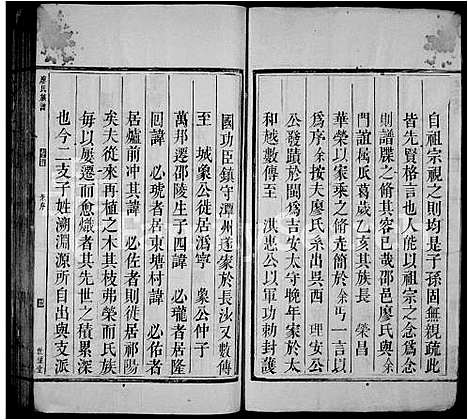 自祖宗視之則均是子孫固無親疏此
皆先賢格言也人能以祖宗之念為念
則譜牒之脩其容已哉邵邑廖氏與余
門誼属瓜葛歲乙亥其族長　榮昌
華榮以家乘之脩先簡於余丐一言以
為序余按夫廖氏系出異西　理安公
公發蹟於閩爲吉安太守晚年家於太
和越數傳至　洪惠公以軍功勅封
國功臣鎮守潭州遂家於長沙又數傳
至　城象公徙居潙寧　象公仲子
萬邦遷邵陵生子四諱　必瓏者居隆
回諱　必琥者居東塘村諱　必佑者
居爐前冲其諱　必佐者則徙居祁陽
矣夫從來再植之木其枝弗榮而氏族
每以屢遷而愈熾者其先世之積累深
也今二支子姓溯淵源所自出與支派
廖氏族譜